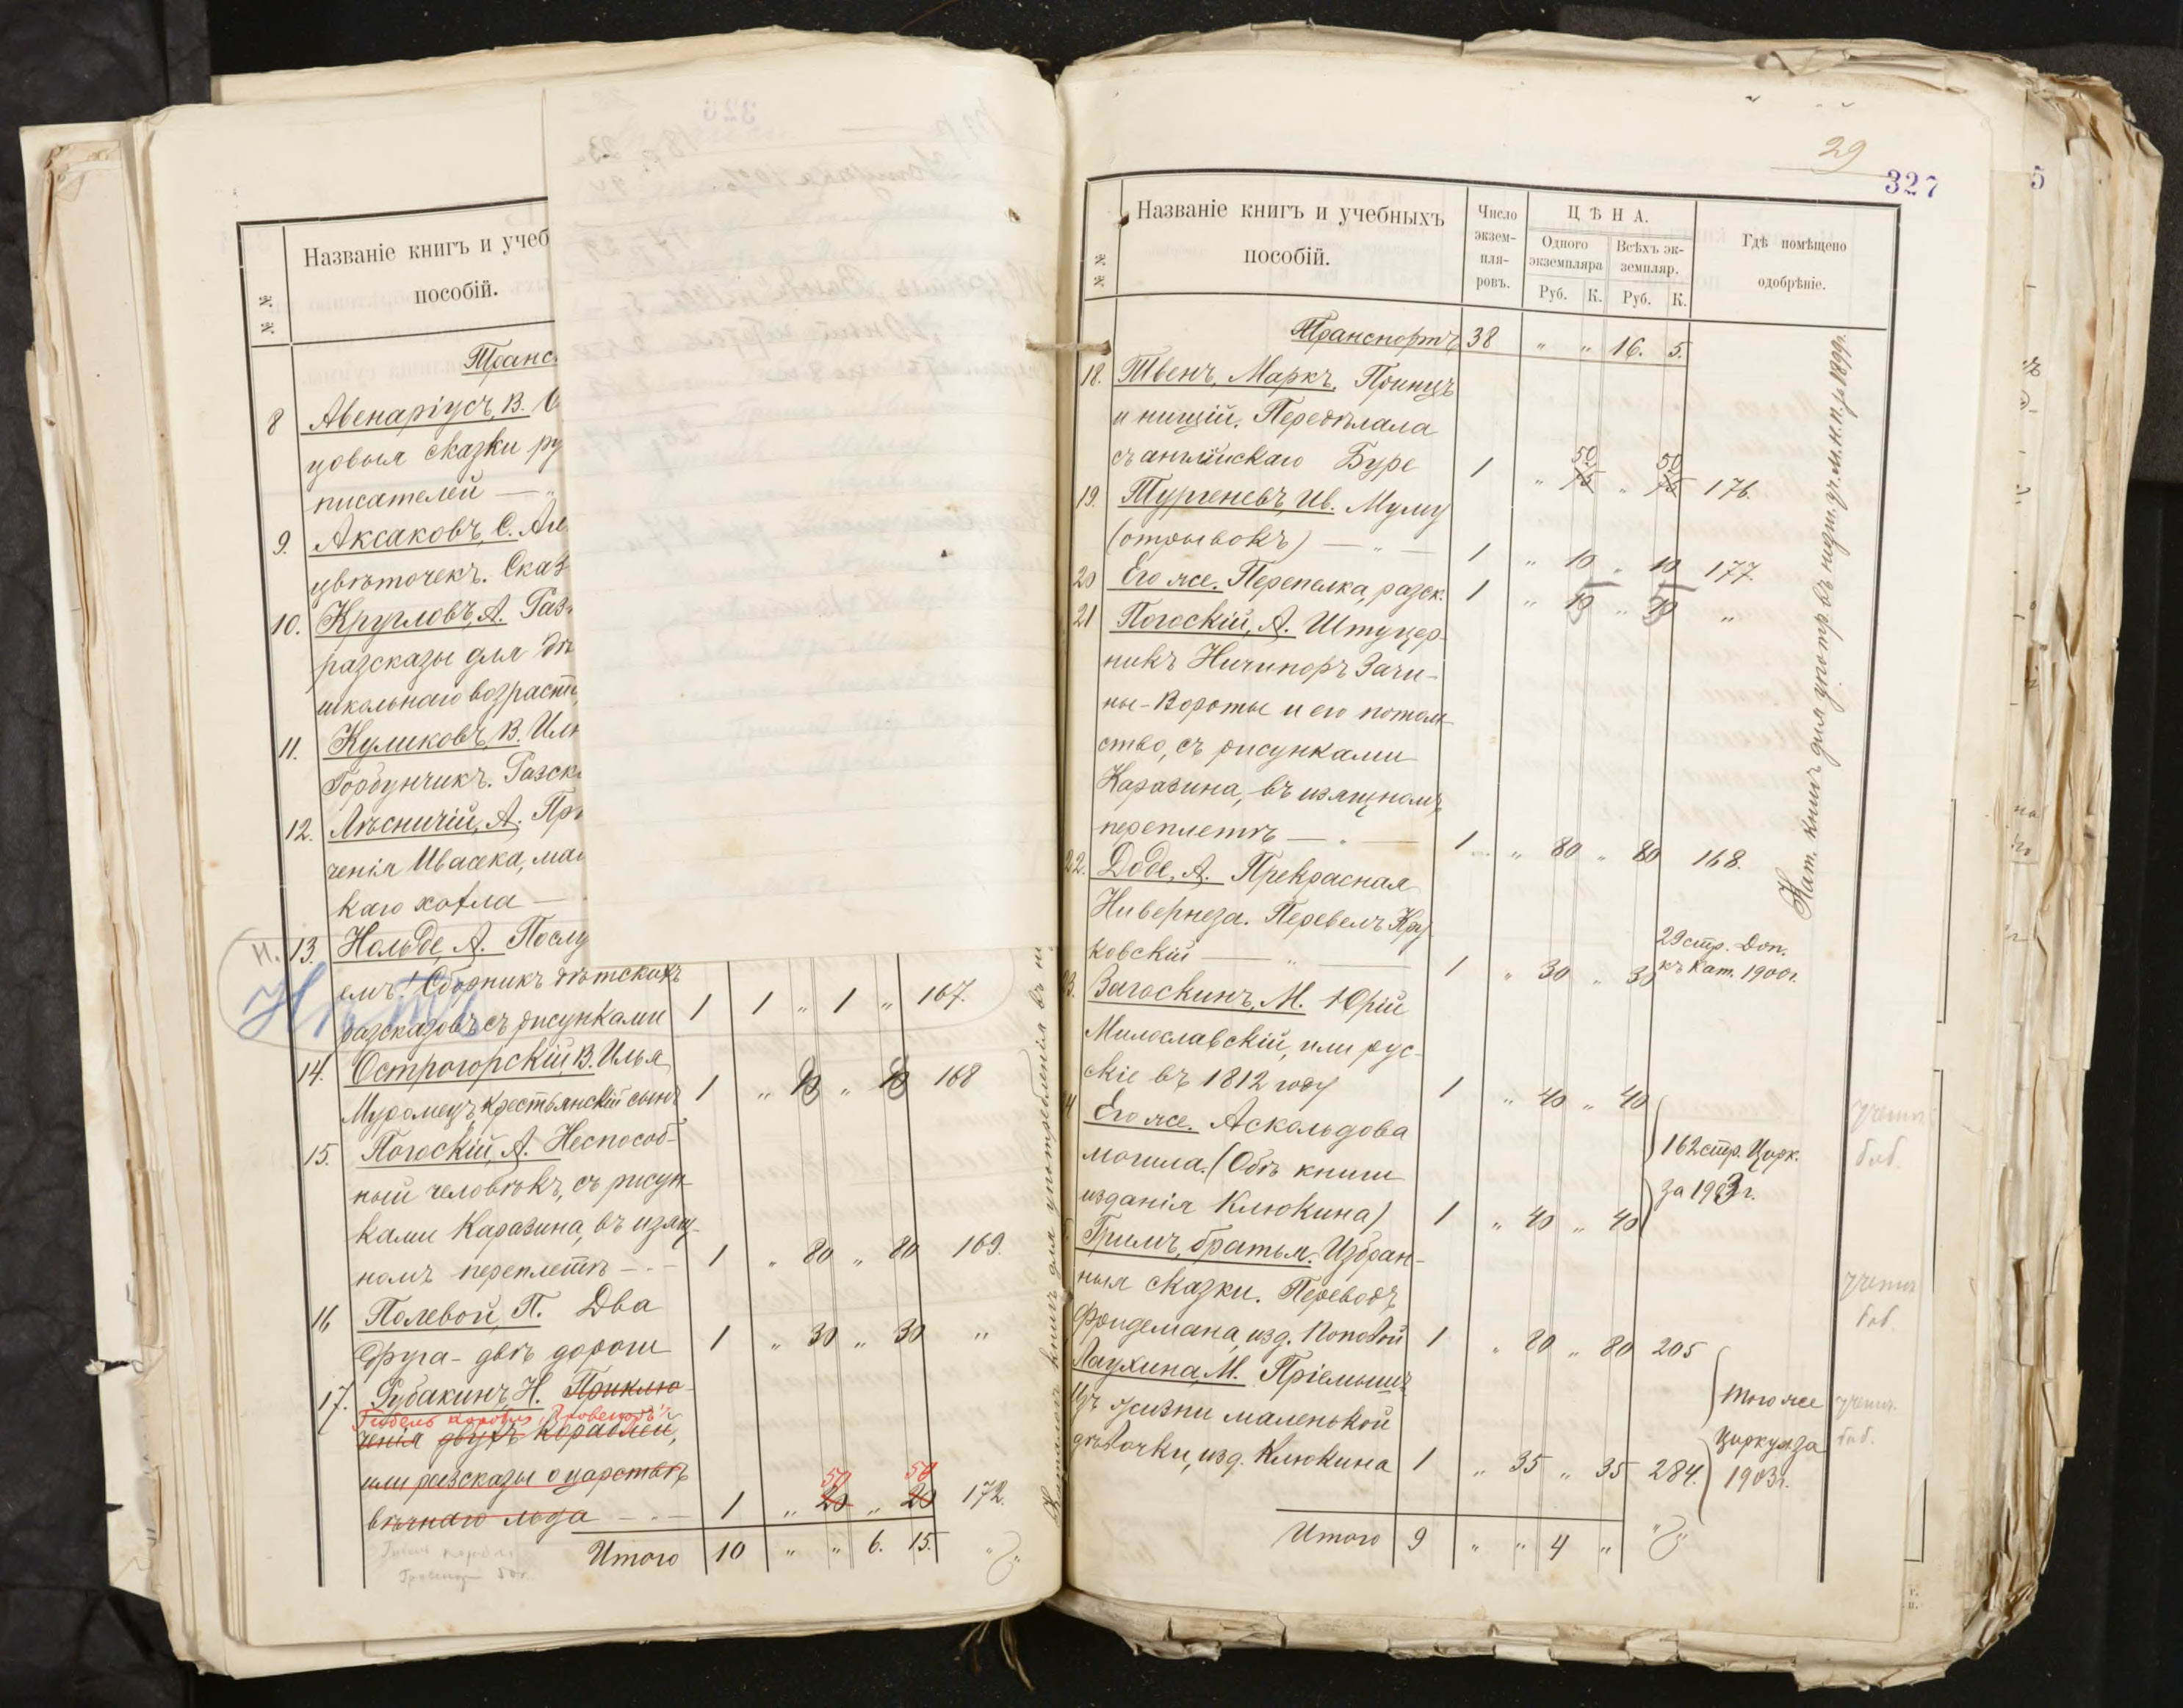 Названіе книгъ и учеб
пособій.
№ №
Транс
8 Авенаріусъ, В. О
цовыя сказки ру
писателей — „
9. Аксаковъ, С. Ал
цвѣточекъ. Сказ
10. Кругловъ, А. Раз
разсказы для дѣ
школьнаго возраста
11. Куликовъ, В. Или
Горбунчикъ. Разск
12. Лѣсничій, А. При
ченія Ивасека, мал
каго хохла —
Н. 13. Нольде, А. Послу
емъ! Сборникъ дѣтскихъ
разсказовъ съ рисунками 1 1 „ 1 „ 167.
Нѣтъ
14. Острогорскій, В. Илья
Муромецъ крестьянскій сынъ 1 „ 10 „ 10 168
15. Погоскій, А. Неспособ-
ный человѣкъ, съ рисун-
ками Каразина, въ изящ-
номъ переплетѣ — „ — 1 „ 80 „ 80 169.
16 Полевой, П. Два
друга - двѣ дороги 1 „ 30 „ 30 „
17. Рубакинъ, Н. Приклю-
Гибель корабля
ченія двухъ кораблей,
или разсказы о царствѣ
50 50
вѣчнаго льда — „ — 1 „ 20 „ 20 172.
Итого 10 „ „ 6. 15. „
29
327
Названіе книгъ и учебныхъ
пособій.
№ №
Число
экзем-
пля-
ровъ.
ЦѢНА.
Одного
экземпляра
Всѣхъ эк-
земпляр.
Руб. К. Руб. К.
Гдѣ помѣщено
одобрѣніе.
Транспортъ 38 „ „ 16. 5.
18. Твенъ, Маркъ. Принцъ
и нищій. Передѣлала
50 50
съ англійскаго Буре 1 „ 75 „ 75 176.
19. Тургеневъ, Ив. Муму
(отрывокъ) — „ — 1 „ 10 „ 10 177.
20 Его же. Перепелка, разск. 1 „ 10 „ 10 „
21 Погоскій, А. Штуцер-
никъ Ничипоръ Зачи-
ны-Вороты и его потом-
ство, съ рисунками
Каразина, въ изящномъ
переплетѣ — „ — 1 „ 80 „ 80 168.
22. Доде, А. Прекрасная
Нивернеза. Перевелъ Кру
ковскій — „ — 1 „ 30 „ 30
29 стр. Доп.
къ Кат. 1900 г.
3. Загоскинъ, М. Юрій
Милославскій, или рус-
скіе въ 1812 году 1 „ 40 „ 40
4 Его же. Аскольдова
могила. (Обѣ книги
изданія Клюкина) 1 „ 40 „ 40
162 стр. Цирк.
за 1903 г.
Гриммъ, братья. Избран-
ныя сказки. Переводъ
Фридемана, изд. Поповой 1 „ 80 „ 80 205
Лаухина, М. Пріемышъ
Изъ жизни маленькой
дѣвочки, изд. Клюкина 1 „ 35 „ 35 284.
того же
циркул. за
1903 г.
Итого 9 „ „ 4 „ „
Кат. книгъ для употр. въ низш. уч. М. Н. П. за 1899 г.